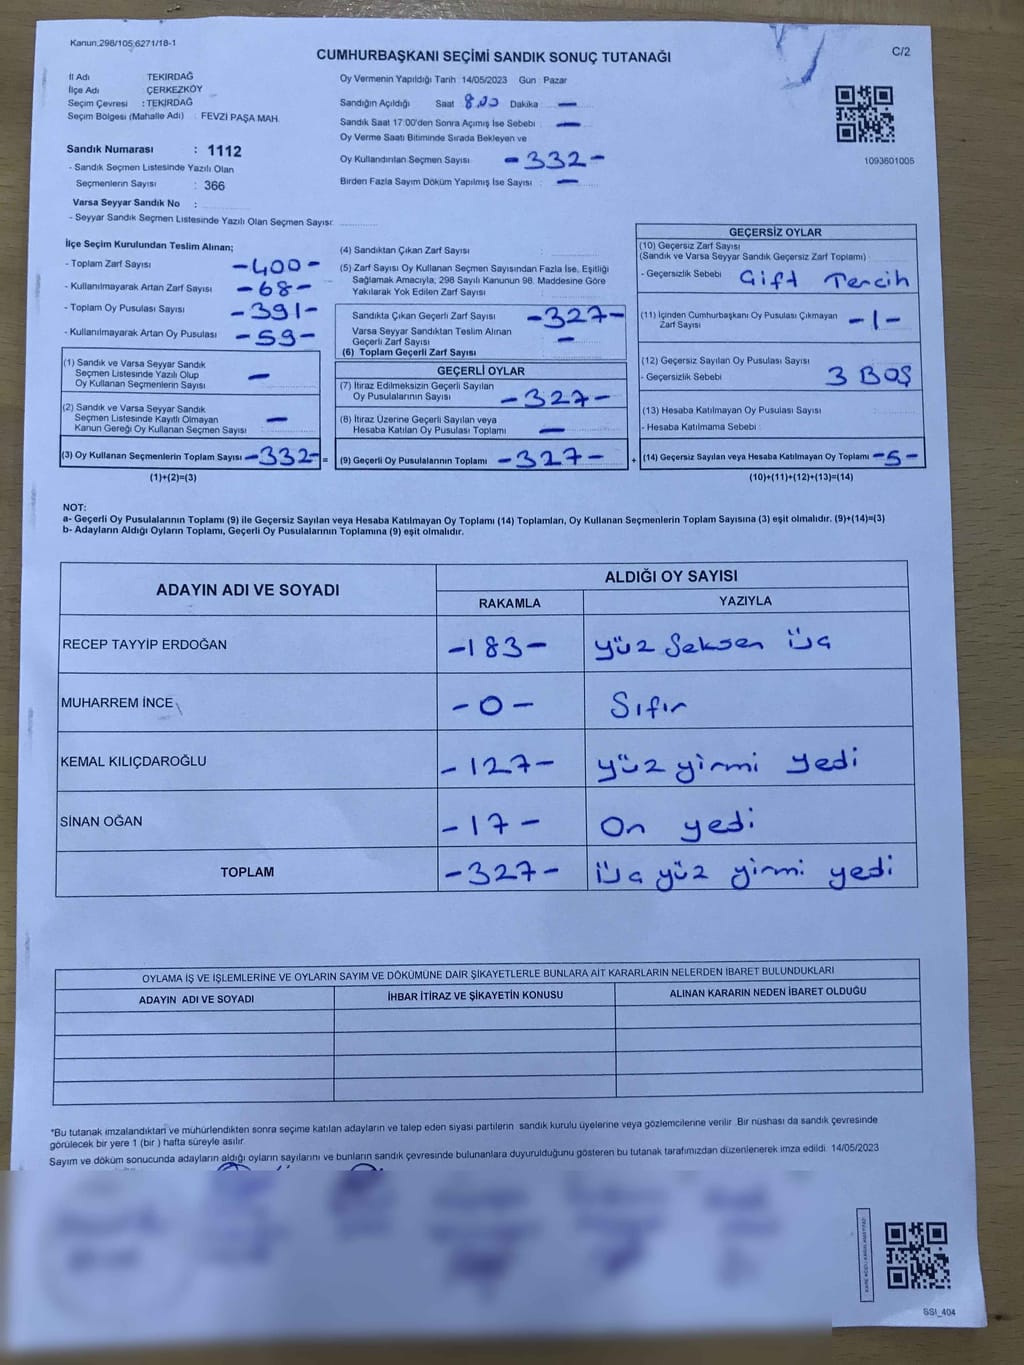 Kanun,298/105,6271/18-1
C/2
CUMHURBAŞKANI SEÇİMİ SANDIK SONUÇ TUTANAĞI
İl Adı TEKİRDAĞ
İlçe Adı ÇERKEZKÖY
Seçim Çevresi : TEKİRDAĞ
Seçim Bölgesi (Mahalle Adı) : FEVZİ PAŞA MAH.
Sandık Numarası : 1112
- Sandık Seçmen Listesinde Yazılı Olan
Seçmenlerin Sayısı : 366
Varsa Seyyar Sandık No :
- Seyyar Sandık Seçmen Listesinde Yazılı Olan Seçmen Sayısı:
Oy Vermenin Yapıldığı Tarih : 14/05/2023 Gün : Pazar
Sandığın Açıldığı Saat 8.00 Dakika : —
Sandık Saat 17:00'den Sonra Açımış İse Sebebi : —
Oy Verme Saati Bitiminde Sırada Bekleyen ve
Oy Kullandırılan Seçmen Sayısı : -332-
Birden Fazla Sayım Döküm Yapılmış İse Sayısı : —
1093601005
İlçe Seçim Kurulundan Teslim Alınan;
- Toplam Zarf Sayısı -400-
- Kullanılmayarak Artan Zarf Sayısı -68-
- Toplam Oy Pusulası Sayısı -391-
- Kullanılmayarak Artan Oy Pusulası -59-
(1) Sandık ve Varsa Seyyar Sandık
Seçmen Listesinde Yazılı Olup
Oy Kullanan Seçmenlerin Sayısı —
(2) Sandık ve Varsa Seyyar Sandık
Seçmen Listesinde Kayıtlı Olmayan
Kanun Gereği Oy Kullanan Seçmen Sayısı —
(3) Oy Kullanan Seçmenlerin Toplam Sayısı -332- =
(1)+(2)=(3)
(4) Sandıktan Çıkan Zarf Sayısı
(5) Zarf Sayısı Oy Kullanan Seçmen Sayısından Fazla İse, Eşitliği
Sağlamak Amacıyla, 298 Sayılı Kanunun 98. Maddesine Göre
Yakılarak Yok Edilen Zarf Sayısı
Sandıkta Çıkan Geçerli Zarf Sayısı -327-
Varsa Seyyar Sandıktan Teslim Alınan
Geçerli Zarf Sayısı —
(6) Toplam Geçerli Zarf Sayısı
GEÇERLİ OYLAR
(7) İtiraz Edilmeksizin Geçerli Sayılan
Oy Pusulalarının Sayısı -327-
(8) İtiraz Üzerine Geçerli Sayılan veya
Hesaba Katılan Oy Pusulası Toplamı —
(9) Geçerli Oy Pusulalarının Toplamı -327- +
GEÇERSİZ OYLAR
(10) Geçersiz Zarf Sayısı
(Sandık ve Varsa Seyyar Sandık Geçersiz Zarf Toplamı)
- Geçersizlik Sebebi Çift Tercih
(11) İçinden Cumhurbaşkanı Oy Pusulası Çıkmayan
Zarf Sayısı -1-
(12) Geçersiz Sayılan Oy Pusulası Sayısı
- Geçersizlik Sebebi 3 BOŞ
(13) Hesaba Katılmayan Oy Pusulası Sayısı
- Hesaba Katılmama Sebebi
(14) Geçersiz Sayılan veya Hesaba Katılmayan Oy Toplamı -5-
(10)+(11)+(12)+(13)=(14)
NOT:
a- Geçerli Oy Pusulalarının Toplamı (9) ile Geçersiz Sayılan veya Hesaba Katılmayan Oy Toplamı (14) Toplamları, Oy Kullanan Seçmenlerin Toplam Sayısına (3) eşit olmalıdır. (9)+(14)=(3)
b- Adayların Aldığı Oyların Toplamı, Geçerli Oy Pusulalarının Toplamına (9) eşit olmalıdır.
ADAYIN ADI VE SOYADI ALDIĞI OY SAYISI
RAKAMLA YAZIYLA
RECEP TAYYİP ERDOĞAN -183- yüz Seksen üç
MUHARREM İNCE -0- Sıfır
KEMAL KILIÇDAROĞLU -127- yüz yirmi yedi
SİNAN OĞAN -17- On yedi
TOPLAM -327- üç yüz yirmi yedi
OYLAMA İŞ VE İŞLEMLERİNE VE OYLARIN SAYIM VE DÖKÜMÜNE DAİR ŞİKAYETLERLE BUNLARA AİT KARARLARIN NELERDEN İBARET BULUNDUKLARI
ADAYIN ADI VE SOYADI İHBAR İTİRAZ VE ŞİKAYETİN KONUSU ALINAN KARARIN NEDEN İBARET OLDUĞU
*Bu tutanak imzalandıktan ve mühürlendikten sonra seçime katılan adayların ve talep eden siyasi partilerin sandık kurulu üyelerine veya gözlemcilerine verilir. Bir nüshası da sandık çevresinde
görülecek bir yere 1 (bir ) hafta süreyle asılır.
Sayım ve döküm sonucunda adayların aldığı oyların sayılarını ve bunların sandık çevresinde bulunanlara duyurulduğunu gösteren bu tutanak tarafımızdan düzenlenerek imza edildi. 14/05/2023
SSI_404